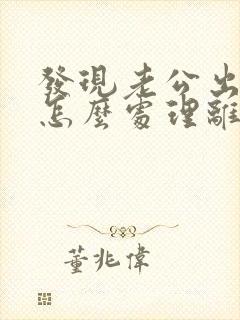 發現老公出
怎麼處理離
董兆偉